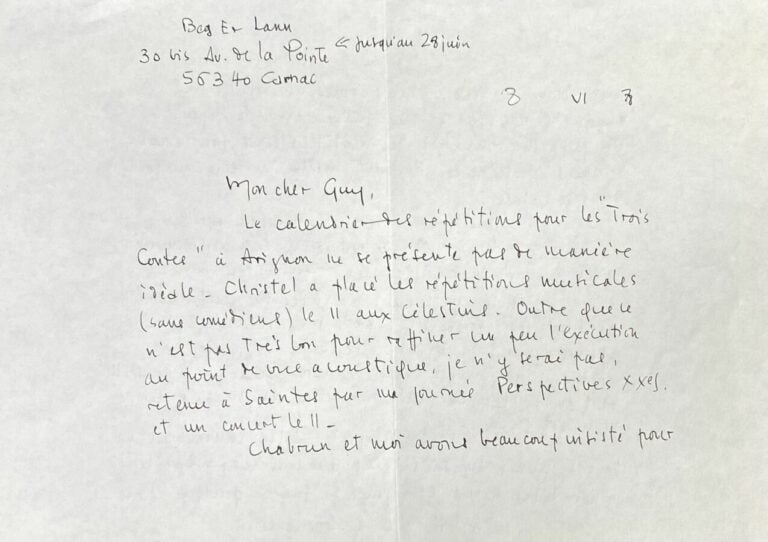 Beg Er Lann
30 bis Av. de la Pointe ← jusqu'au 28 juin
56340 Carnac
8 VI
Mon cher Guy,
Le calendrier des répétitions pour les "Trois
Contes" à Avignon ne se présente pas de manière
idéale - Christel a placé les répétitions musicales
(sans comédiens) le 11 aux Célestins. Outre que ce
n'est pas très bon pour raffiner un peu l'exécution
au point de vue acoustique, je n'y serai pas,
retenu à Saintes par ma journée Perspectives XXes.
et un concert le 11 -
Chabrun et moi avons beaucoup insisté pour